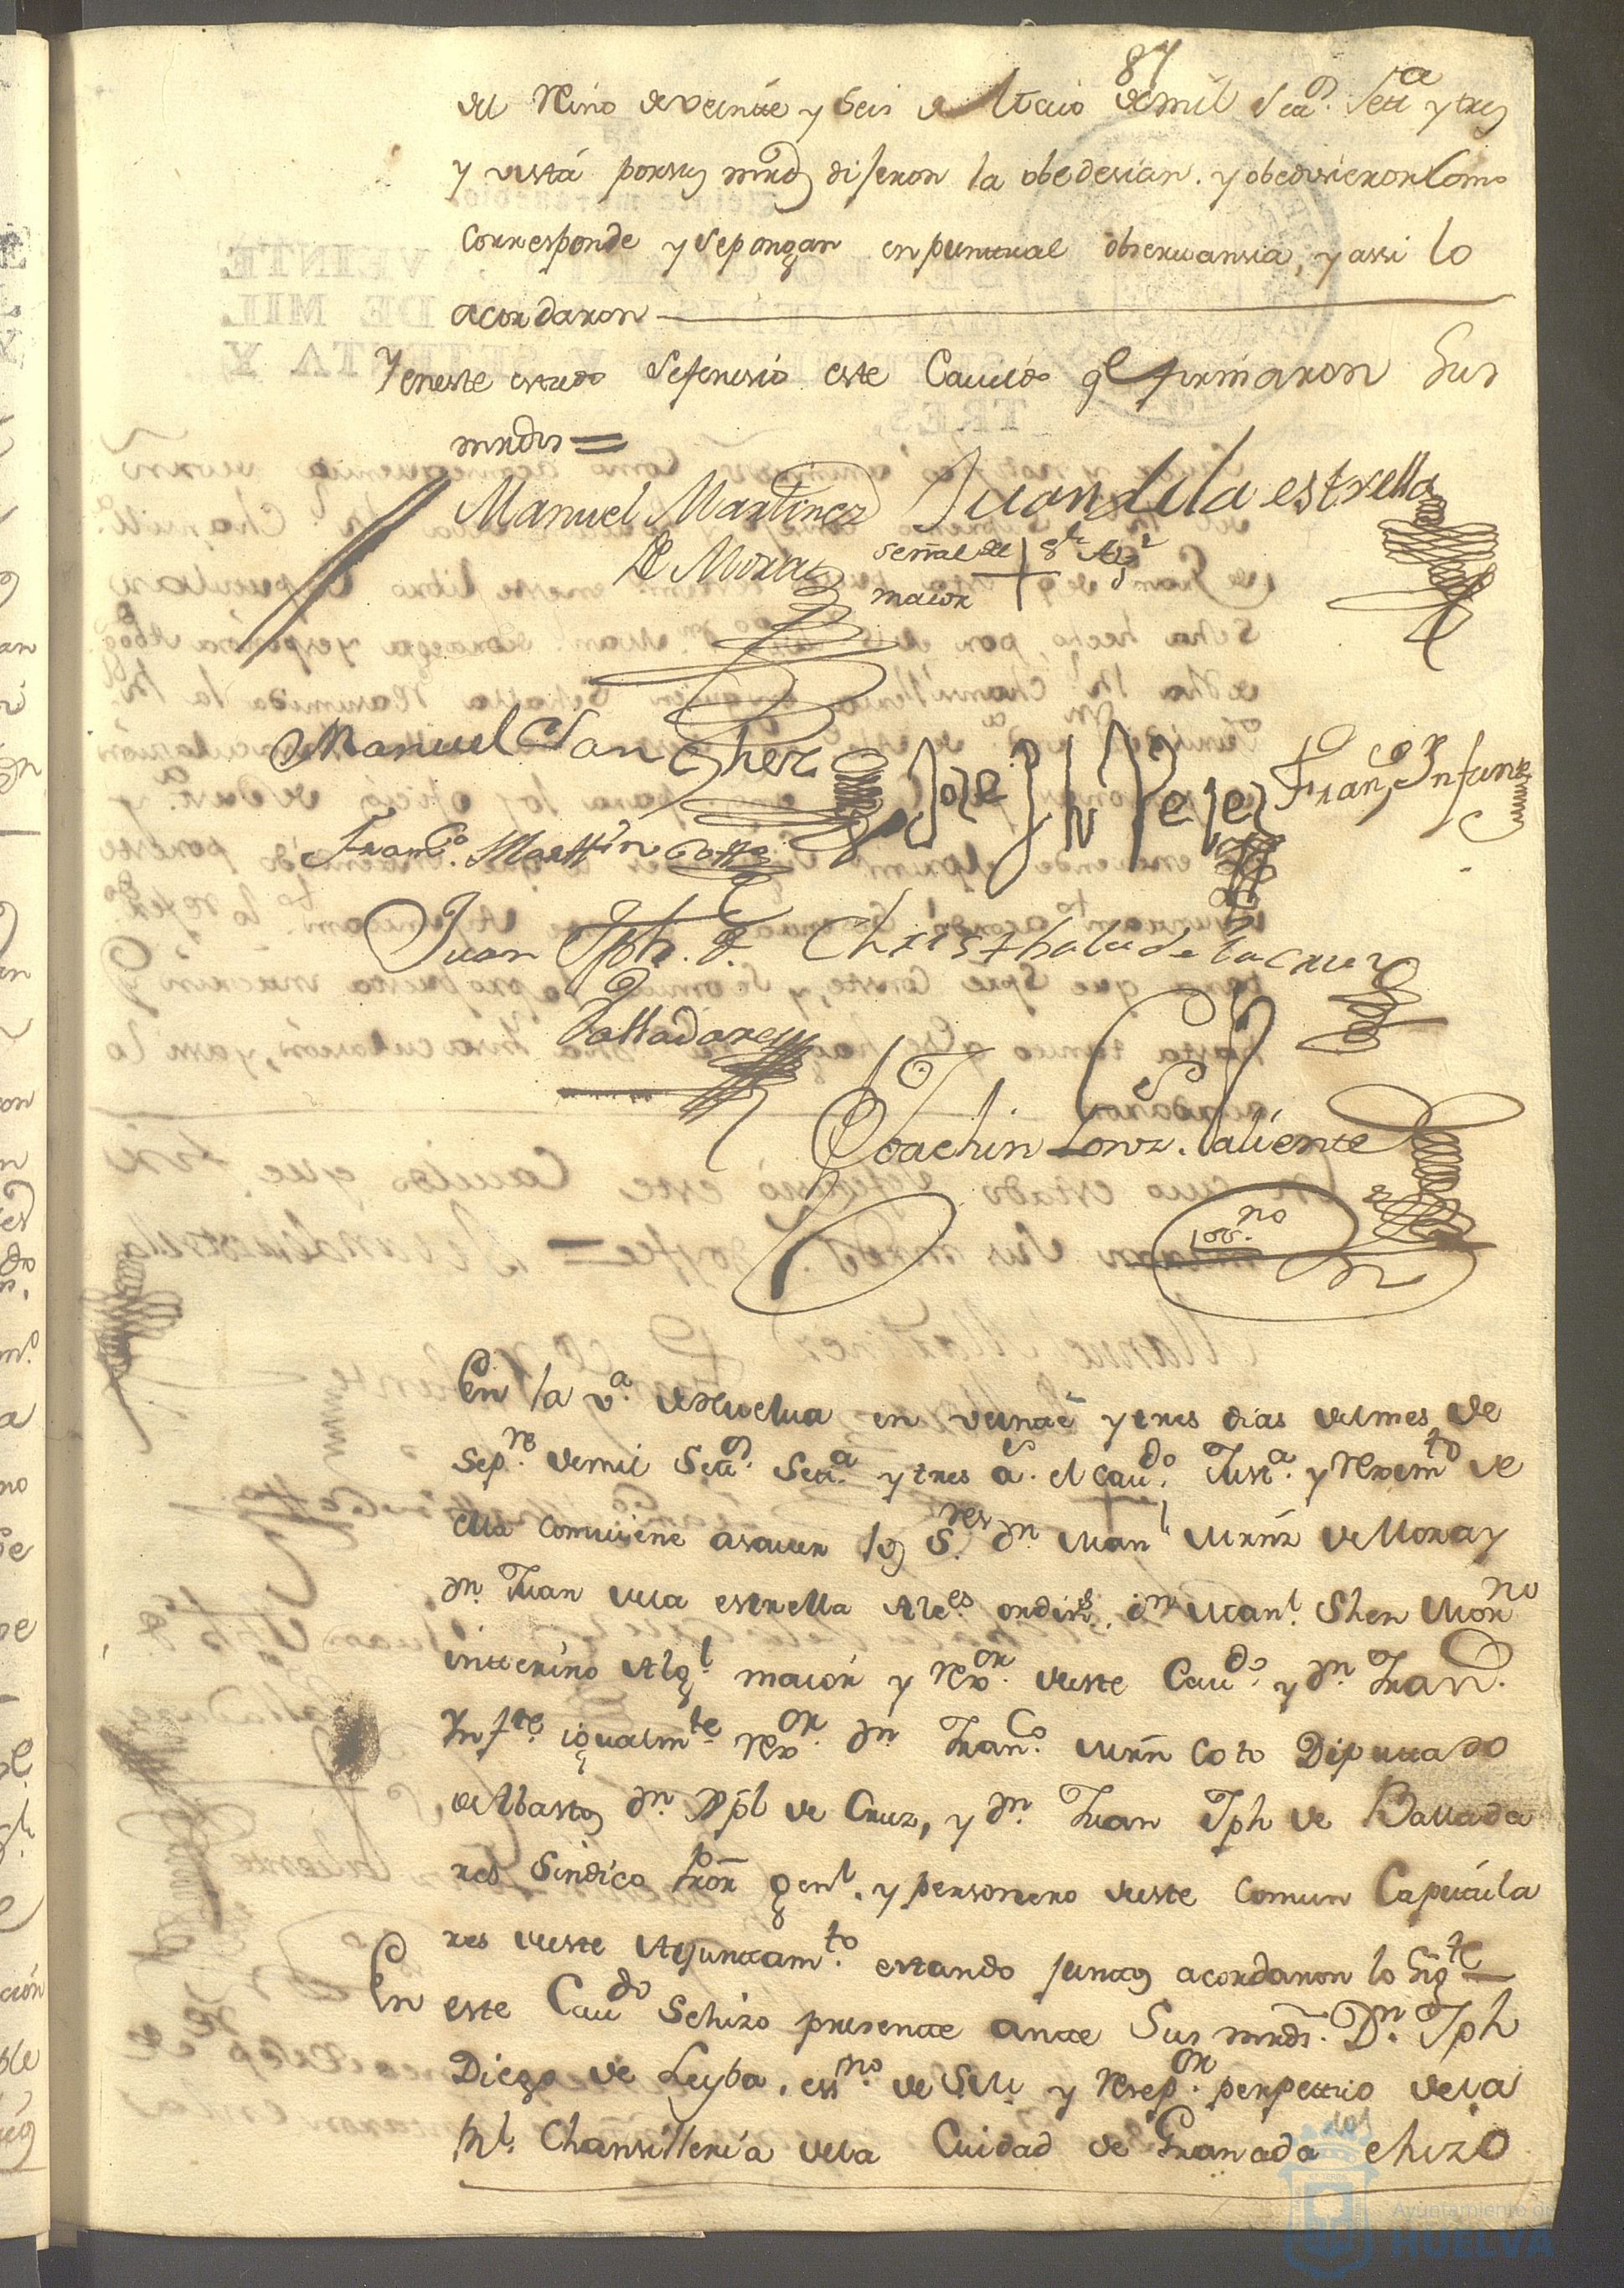 87
del Reino de veinte y seis de Maio de mil setts. setta y tres
y vista por sus mrds dijeron la obedesian. y obedesieron como
corresponde y se pongan en puntual obseruansia, y assi lo
acordaron
Y en este estado se fenesio este Cauildo qe firmaron Sus
mrds =
Manuel Martinez Juan de la estrella
de Mora señal del + Sr Algl
maior
Manuel Sanchez Joseph Perez Franco Infante
Franco. Martin Cotto
Juan Jph. de Christobal de la cruz
Valladares
Joachin Lonz. Valiente
ssno
En la va. de Huelua en veinte y tres dias del mes de
Sepre. de mil Setts. Setta. y tres as. el caudo. Justa. y Rexmto de
ella combiene asauer los Sres. Dn Manl Mrnz de Mora y
Dn. Juan de la estrella Alces ordins. Dn Manl. Shez Morno
intterino Algl. maior y Rexor. de este Caudo. y Dn. Fran.
Infte. igualmte Rexor. Dn Franco. Mrn Coto Diputtado
de Abastos Dn. Xptl de Cruz, y Dn. Juan Jph de Ballada
res Sindico Pror genl. y personero de este comun Capitula
res de este Ayunttamto. estando juntos acordaron lo sigte
En este Caudo se hizo presentte antte Sus mrds. Dn. Jph
Diego de Leyba, essno. de S.M. y Resepor. perpettuo de la
Rl. Chansilleria de la Ciudad de Granada e hizo
dos
Ayuntamiento de
HUELVA